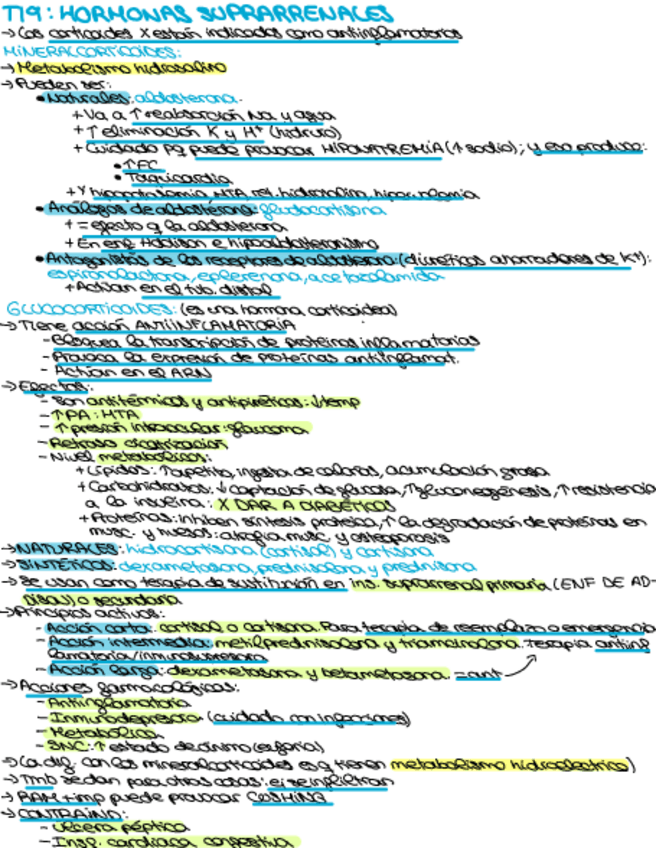 T19: HORMONAS SUPRARRENALES
→ Los corticoides X están indicados como antiinflamatorios
MINERALCORTICOIDES:
→ Metabolismo hidrosalino
→ Pueden ser:
• Naturales: aldosterona.
+ Va a ↑ reabsorción Na y agua
+ ↑ eliminación K y H⁺ (hidruro)
+ Cuidado pq puede provocar HIPONATREMIA (↑ sodio); y eso produce:
• ↑FC
• Taquicardia
+ Y hipopotasemia, HTA, ret. hidrosalina,
• Análogos de aldosterona: fludrocortisona
+ = efecto q la aldosterona
+ En enf. Addison e hipoaldosteronismo
• Antagonistas de los receptores de aldosterona: (diuréticos ahorradores de K⁺):
espironolactona, eplerenona, acetazolamida
+ Actúan en el tub. distal
GLUCOCORTICOIDES: (es una hormona corticoidea)
→ Tiene acción ANTIINFLAMATORIA
- Bloquea la transcripción de proteínas inflamatorias
- Provoca la expresión de proteínas antiinflamat.
- Actúan en el ARN
→ Efectos:
- Son antitérmicos y antipiréticos: ↓temp
- ↑PA: HTA
- ↑ presión intraocular: glaucoma
- Retraso cicatrización
- Nivel metabólicos:
+ Lípidos: ↑apetito, ingesta de calorías, acumulación grasa
+ Carbohidratos: ↓ captación de glucosa, ↑gluconeogénesis, ↑ resistencia
a la insulina: X DAR A DIABÉTICOS
+ Proteínas: inhiben síntesis proteica, ↑ la degradación de proteínas en
musc. y huesos: atrofia musc. y osteoporosis
→ NATURALES: hidrocortisona (cortisol) y cortisona
→ SINTÉTICOS: dexametasona, prednisolona y prednisona
→ Se usan como terapia de sustitución en ins. suprarrenal primaria (ENF DE AD-
DISON) o secundaria
→ Principios activos:
- Acción corta: cortisol o cortisona. Para terapia de reemplazo o emergencia
- Acción intermedia: metilprednisolona y triamcinolona. Terapia antiinf
lamatoria/inmunosupresora
- Acción larga: dexametasona y betametasona. = ant
→ Acciones farmacológicas:
- Antiinflamatoria
- Inmunodepresora (cuidado con infecciones)
- Metabólica
- SNC: ↑ estado de ánimo (euforia)
→ La dif. con los mineralcorticoides es q tienen metabolismo hidroeléctrico)
→ Tmb se dan para otras cosas: ej se infiltran
→ RAM + imp puede provocar CUSHING
→ CONTRAIND:
- Úlcera péptica
- Insf. cardiaca congestiva